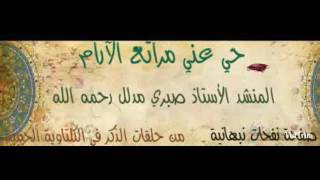 حي عني مراتع الآرام
المنشد الأستاذ صبري مدلل رحمه الله
نفحات نبهانية من حلقات الذكر في الكلتاوية